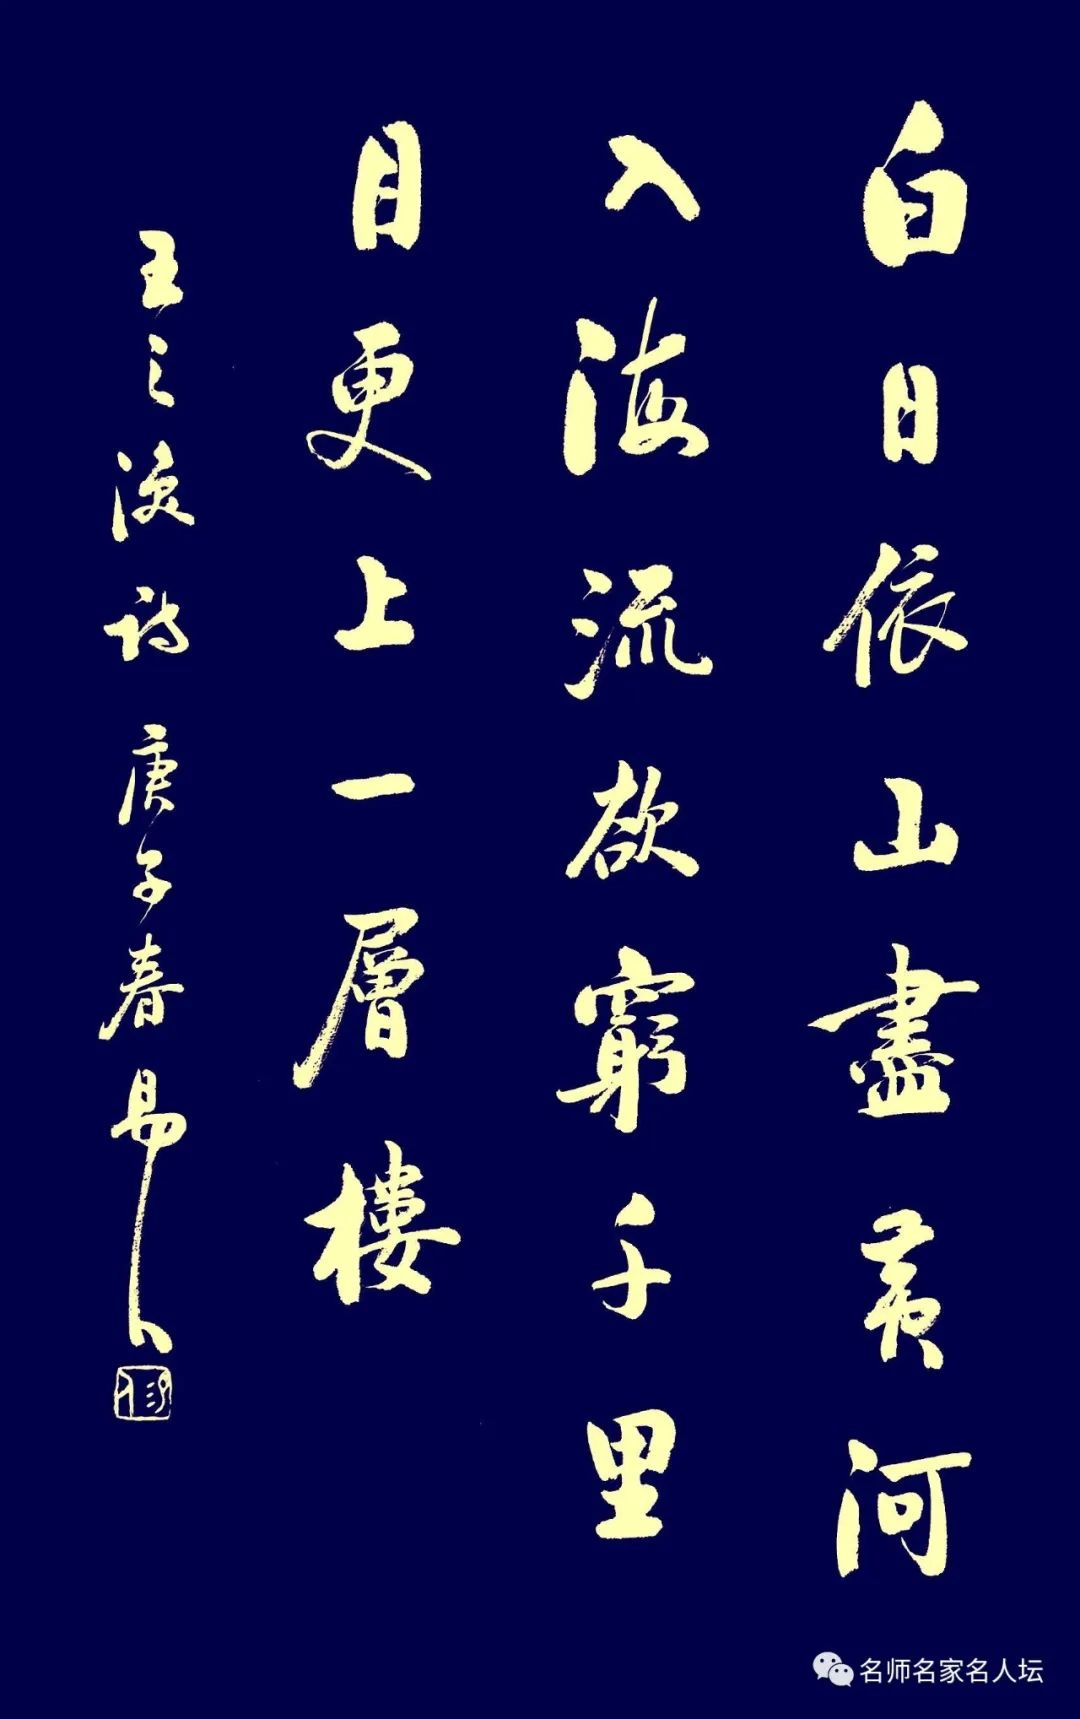 白日依山盡黃河
入海流欲窮千里
目更上一層樓
王之渙詩 庚子春 易
名师名家名人坛